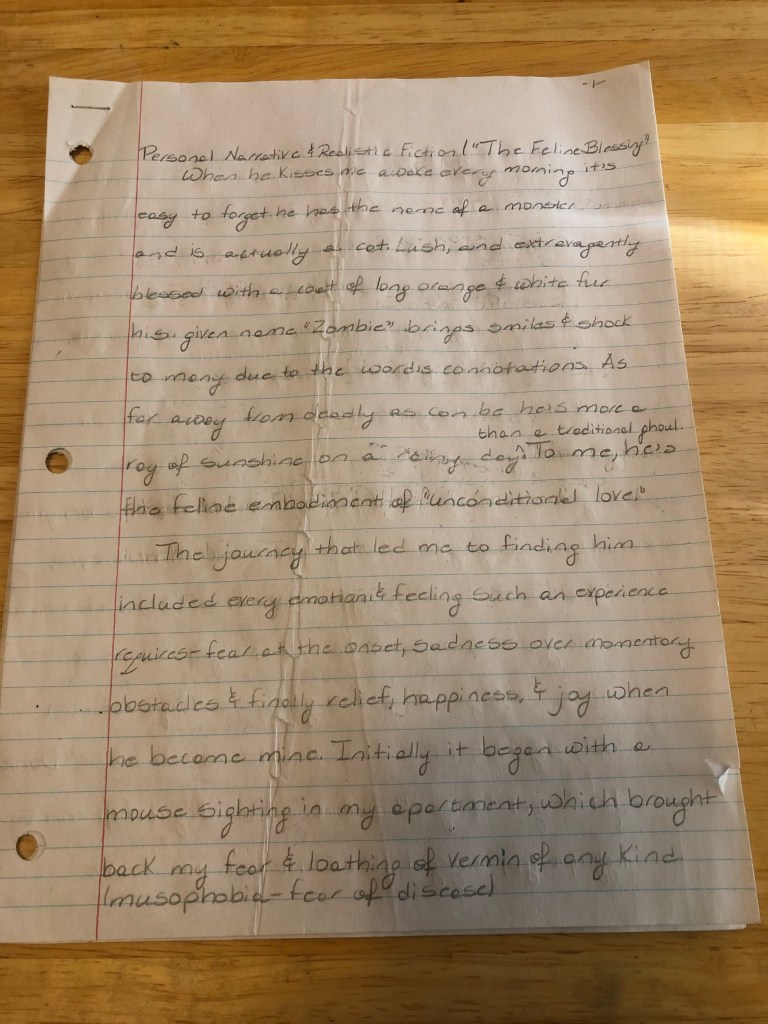 -1-
Personal Narrative & Realistic Fiction ("The Feline Blessing"
When he kisses me awake every morning it's
easy to forget he has the name of a monster
and is actually a cat. Lush, and extravagently
blessed with a coat of long orange & white fur
his given name "Zombie" brings smiles & shock
to many due to the word's connotations. As
far away from deadly as can be he's more a
than a traditional ghoul.
ray of sunshine on a rainy day^. To me, he's
the feline embodiment of "unconditional love."
The journey that led me to finding him
included every emotion & feeling such an experience
requires- fear at the onset, sadness over momentary
obstacles & finally relief, happiness, & joy when
he became mine. Initially it began with a
mouse sighting in my apartment, which brought
back my fear & loathing of vermin of any kind.
(musophobia- fear of disease)